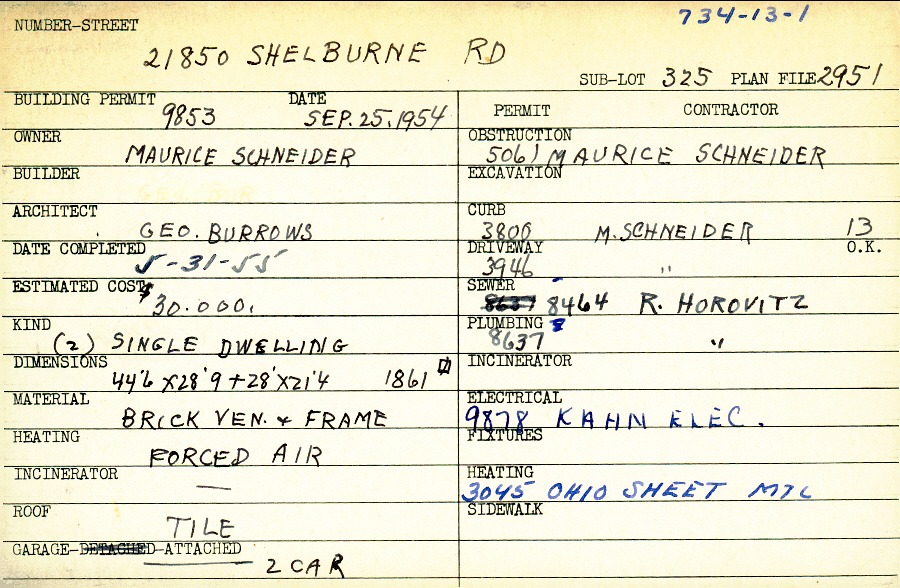 734-13-1
NUMBER-STREET
21850 SHELBURNE RD
SUB-LOT 325 PLAN FILE 2951
BUILDING PERMIT DATE
9853 SEP. 25, 1954
PERMIT CONTRACTOR
OWNER
MAURICE SCHNEIDER
OBSTRUCTION
5061 MAURICE SCHNEIDER
BUILDER
EXCAVATION
ARCHITECT
GEO. BURROWS
CURB
3800 M. SCHNEIDER 13
DATE COMPLETED
5-31-55
DRIVEWAY O.K.
3946 "
ESTIMATED COST
$30.000.
SEWER
8637 8464 R. HOROVITZ
KIND
(2) SINGLE DWELLING
PLUMBING
8637 "
DIMENSIONS
44'6 X 28'9 + 28' X 21'4 1861
INCINERATOR
MATERIAL
BRICK VEN. & FRAME
ELECTRICAL
9878 KAHN ELEC.
HEATING
FORCED AIR
FIXTURES
INCINERATOR
—
HEATING
3045 OHIO SHEET MTL
ROOF
TILE
SIDEWALK
GARAGE-DETACHED-ATTACHED
2 CAR